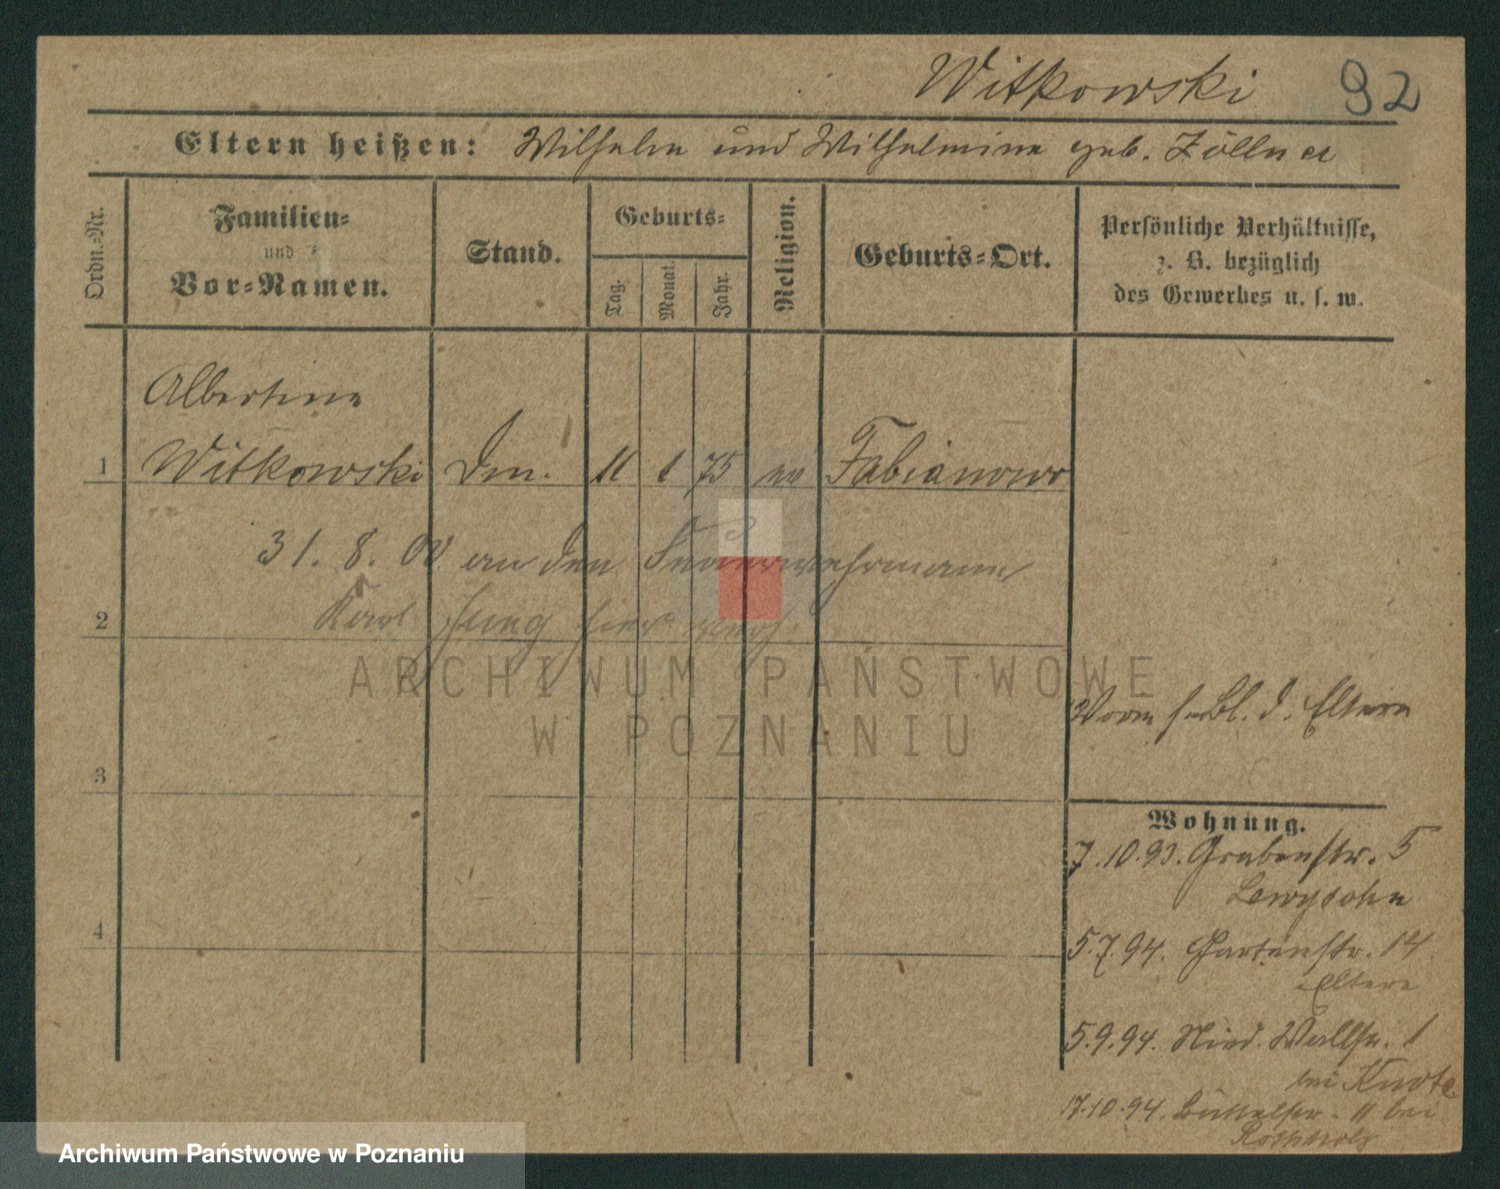 Witkowski 92
Eltern heißen: Wilhelm und Wilhelmine geb. Zöllner
Ordn.=Nr.
Familien=
und
Vor=Namen.
Stand.
Geburts=
Tag.
Monat.
Jahr.
Religion.
Geburts=Ort.
Persönliche Verhältnisse,
z. B. bezüglich
des Gewerbes u. s. w.
Albertine
1 Witkowski 11 1 75 ev Fabianowo
31. 8. 00 an den Feuerwehrmann
2 Karl Jung hier verh.
3
4
Bl. d. Eltern
Wohnung.
7.10.93. Grabenstr. 5
Lewysohn
5.7.94. Gartenstr. 14.
Eltern
5.9.94. Nied. Wallstr. 1
bei Knote
17.10.94. Büttelstr. 11 bei
Rothholz
ARCHIWUM PAŃSTWOWE
W POZNANIU
Archiwum Państwowe w Poznaniu